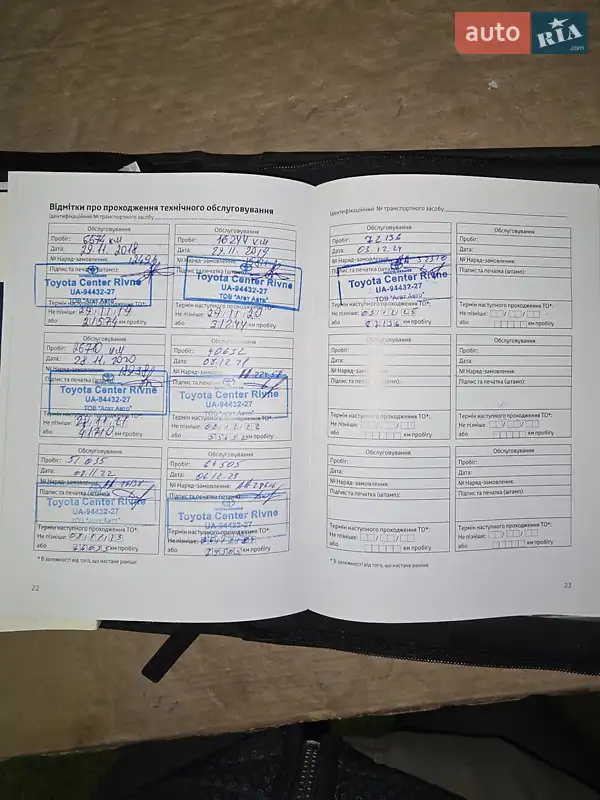 auto RIA .com
Відмітки про проходження технічного обслуговування
Ідентифікаційний № транспортного засобу
Обслуговування
Пробіг: 6674 км
Дата: 29.11.2018
№ Наряд-замовлення:
Підпис та печатка (штамп):
Toyota Center Rivne
UA-94432-27
ТОВ "Агат Авто"
Термін наступного проходження ТО*:
Не пізніше: 29.11.19
або 21574 км пробігу
Обслуговування
Пробіг: 16244 км
Дата: 29.11.2019
№ Наряд-замовлення:
Підпис та печатка (штамп):
Toyota Center Rivne
UA-94432-27
ТОВ "Агат Авто"
Термін наступного проходження ТО*:
Не пізніше: 29.11.20
або 31244 км пробігу
Обслуговування
Пробіг:
Дата: 2020
№ Наряд-замовлення:
Підпис та печатка (штамп):
Toyota Center Rivne
UA-94432-27
ТОВ "Агат Авто"
Термін наступного проходження ТО*:
Не пізніше:
або км пробігу
Обслуговування
Пробіг: 40632
Дата:
№ Наряд-замовлення:
Підпис та печатка (штамп):
Toyota Center Rivne
UA-94432-27
Термін наступного проходження ТО*:
Не пізніше:
або км пробігу
Обслуговування
Пробіг: 51 035
Дата:
№ Наряд-замовлення:
Підпис та печатка (штамп):
Toyota Center Rivne
UA-94432-27
ТОВ "Агат Авто"
Термін наступного проходження ТО*:
Не пізніше:
або 66035 км пробігу
Обслуговування
Пробіг:
Дата: 06.12.23
№ Наряд-замовлення:
Підпис та печатка (штамп):
Toyota Center Rivne
UA-94432-27
Термін наступного проходження ТО*:
Не пізніше:
або км пробігу
* В залежності від того, що настане раніше.
22
Ідентифікаційний № транспортного засобу
Обслуговування
Пробіг: 72136
Дата: 03.12.24
№ Наряд-замовлення:
Підпис та печатка (штамп):
Toyota Center Rivne
UA-94432-27
ТОВ "Агат Авто"
Термін наступного проходження ТО*:
Не пізніше: 03.12.25
або 87136 км пробігу
Обслуговування
Пробіг:
Дата:
№ Наряд-замовлення:
Підпис та печатка (штамп):
Термін наступного проходження ТО*:
Не пізніше:
або км пробігу
Обслуговування
Пробіг:
Дата:
№ Наряд-замовлення:
Підпис та печатка (штамп):
Термін наступного проходження ТО*:
Не пізніше:
або км пробігу
Обслуговування
Пробіг:
Дата:
№ Наряд-замовлення:
Підпис та печатка (штамп):
Термін наступного проходження ТО*:
Не пізніше:
або км пробігу
Обслуговування
Пробіг:
Дата:
№ Наряд-замовлення:
Підпис та печатка (штамп):
Термін наступного проходження ТО*:
Не пізніше:
або км пробігу
Обслуговування
Пробіг:
Дата:
№ Наряд-замовлення:
Підпис та печатка (штамп):
Термін наступного проходження ТО*:
Не пізніше:
або км пробігу
* В залежності від того, що настане раніше.
23